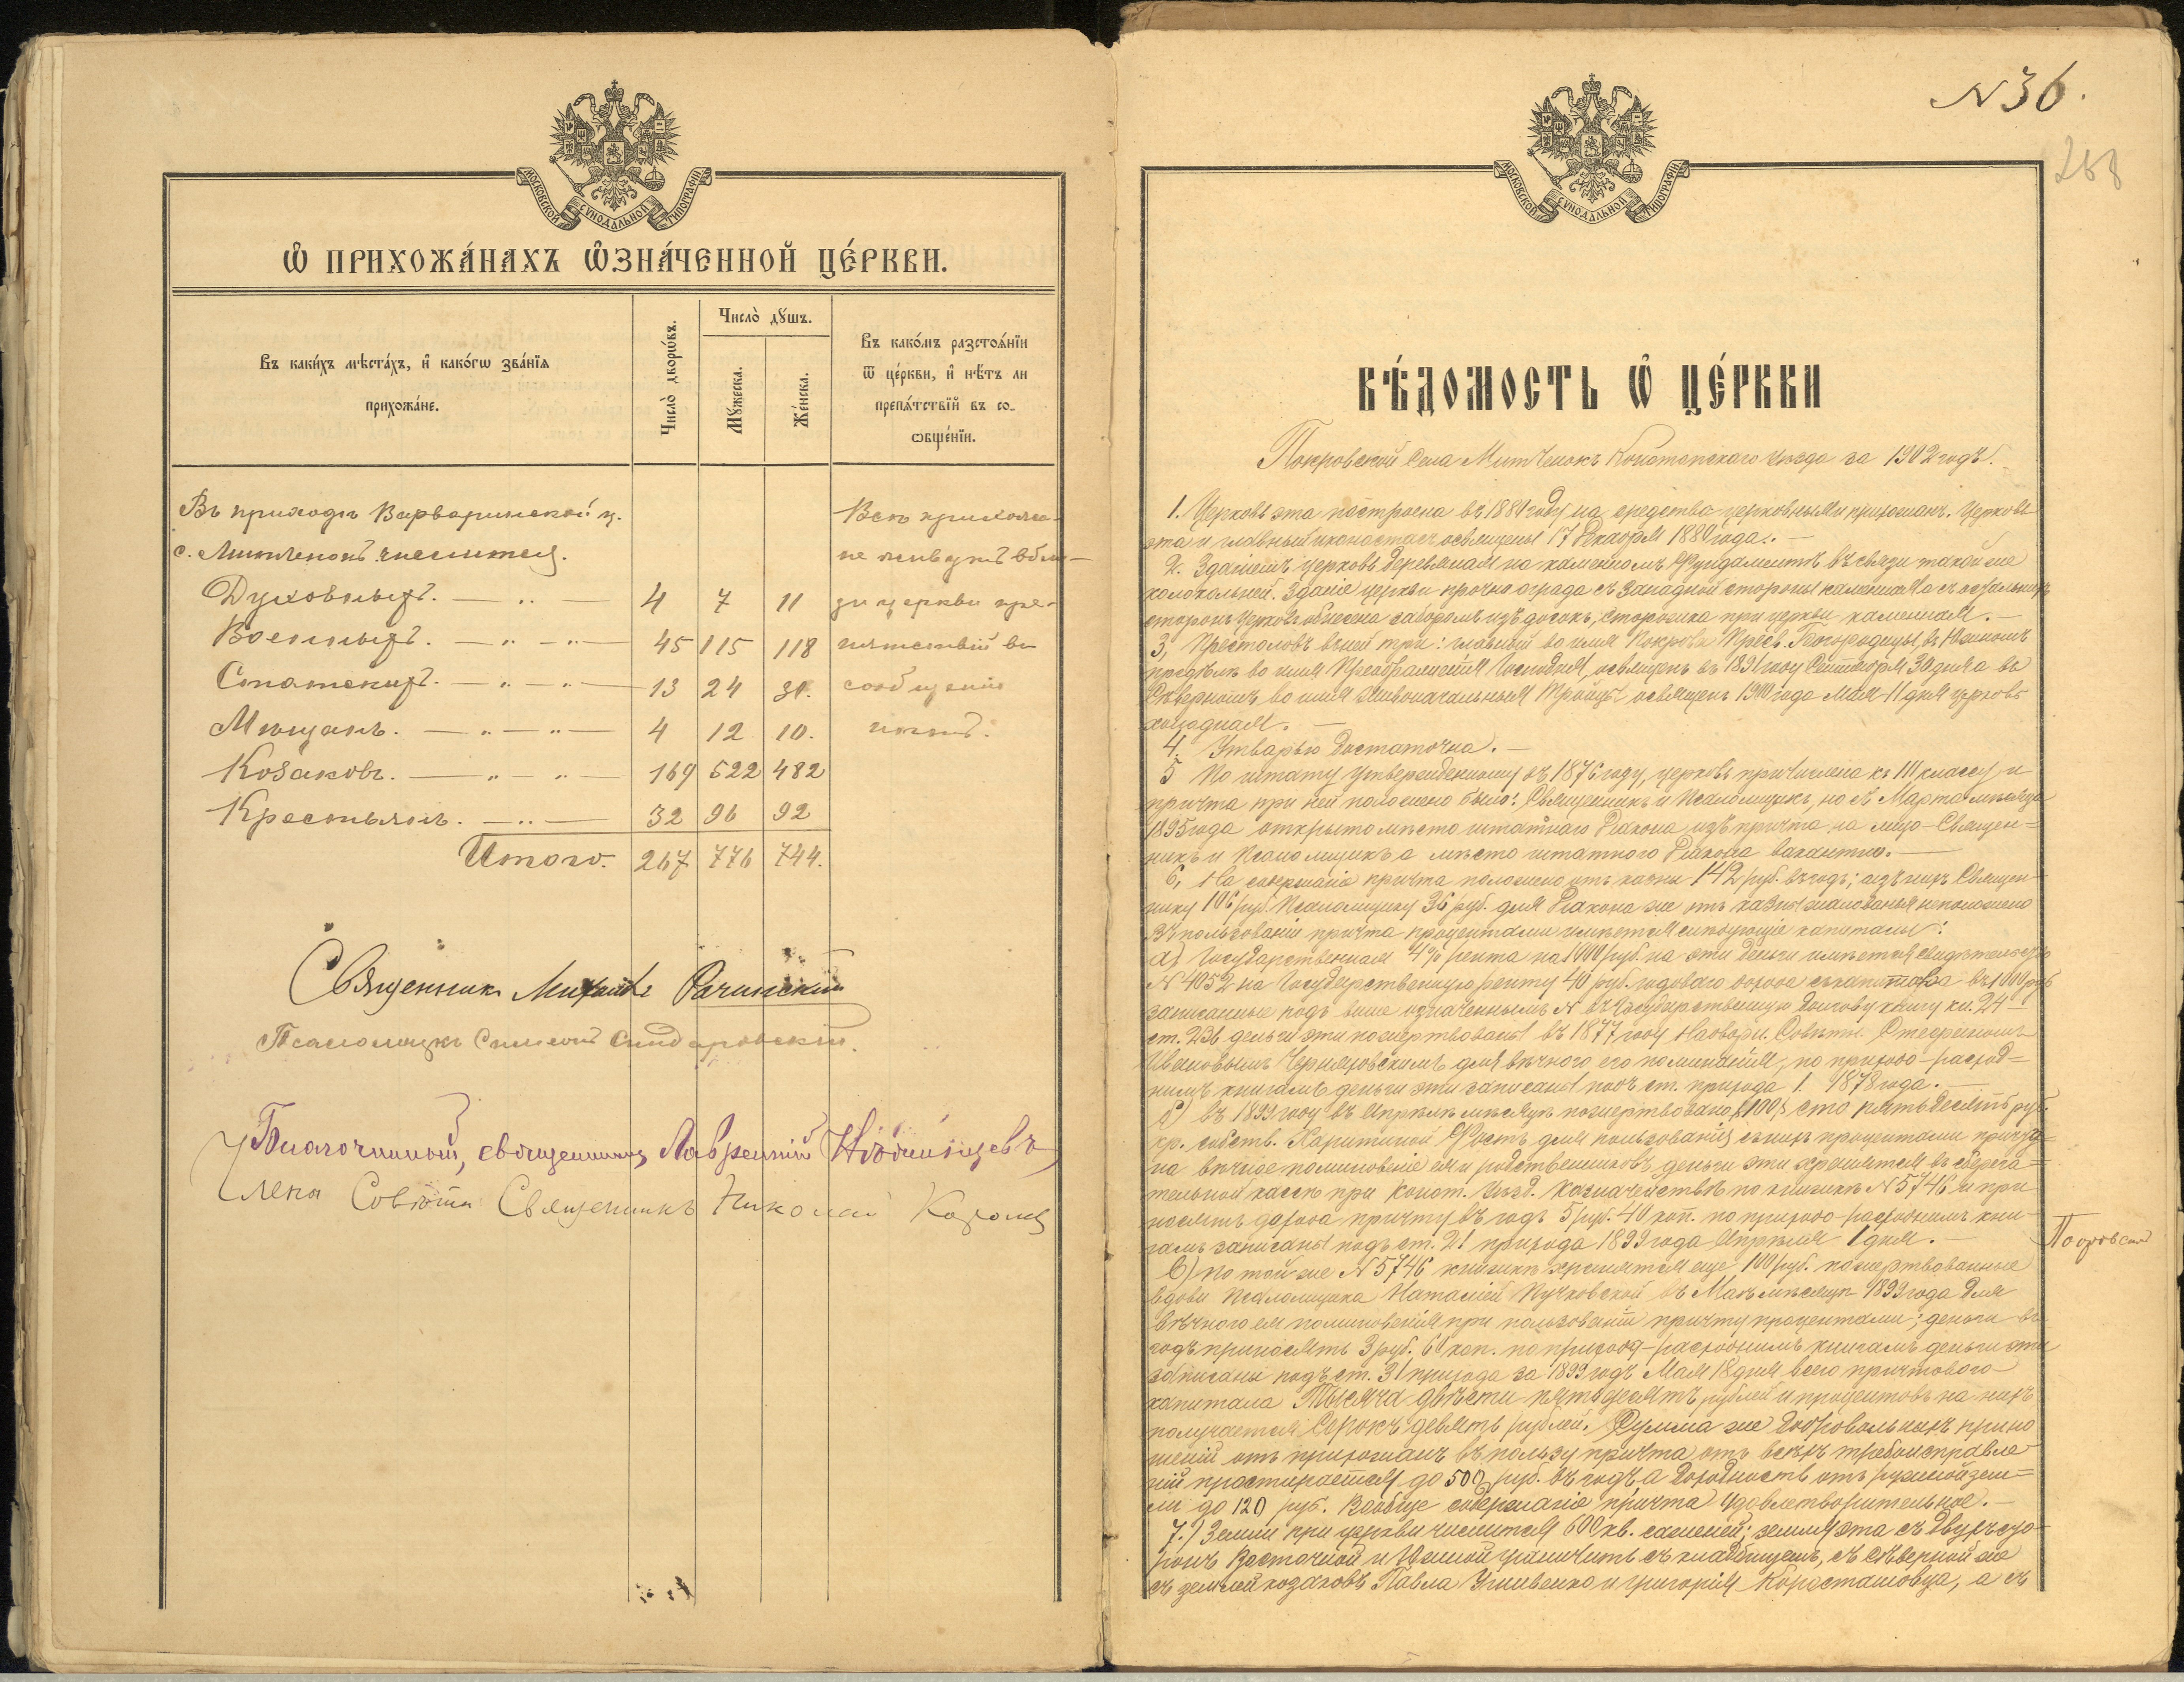 МОСКОВСКОЙ СѴНОДАЛЬНОЙ ТИПОГРАФІИ
Ѡ ПРИХОЖА́НАХЪ Ѡ҆ЗНА́ЧЕННОЙ ЦЕ́РКВИ.
Въ каки́хъ мѣста́хъ, и҆ како́гѡ зва́нїѧ
прихожа́не.
Число̀ дворѡ́въ.
Число̀ дꙋ́шъ.
Мꙋ́жеска.
Же́нска.
Въ како́мъ разстоѧ́нїи
ѿ це́ркви, и҆ нѣ́тъ ли
препѧ́тствїй въ со-
ѻбще́нїи.
Въ приходѣ Варваринской ц.
с. Митченокъ числится.
Духовныхъ. 4 7 11
Военныхъ. 45 115 118
Статскихъ. 13 24 31.
Мѣщанъ. 4 12 10.
Козаковъ. 169 522 482
Крестьянъ. 32 96 92
Итого. 267 776 744.
Всѣ прихожа-
не живутъ вбли-
зи церкви пре-
пятствій въ
сообщеніи
нѣтъ.
Священникъ Михаилъ Рачинскій
Псаломщикъ Симеонъ
Благочинный, священникъ Лаврентій
Члена Совѣта Священникъ Николай
N 36.
258
МОСКОВСКОЙ СѴНОДАЛЬНОЙ ТИПОГРАФІИ
ВѢ́ДОМОСТЬ Ѡ҆ ЦЕ́РКВИ
Покровской села Митченокъ Конотопскаго уѣзда за 1902 годъ.
1. Церковь эта построена въ году на средства церковныя и прихожанъ. Церковь
эта и главный иконостасъ освящены 17 Декабря 1880 года. —
2. Зданіемъ церковь деревянная на каменномъ фундаментѣ въ связи такой же
колокольней. Зданіе церкви прочно ограда съ западной стороны каменная а съ остальныхъ
сторонъ церковь обнесена заборомъ изъ досокъ, сторожка при церкви каменная. —
3, Престоловъ въ ней три: главный во имя Покрова Пресв. Богородицы, въ Южномъ
предѣлѣ во имя Преображенія Господня, освященъ въ 1891 году Сентября 30 дня а въ
Сѣверномъ во имя Живоначальныя Троицы освященъ года Мая 11 дня церковь
холодная. —
4. Утварью достаточна. —
5 По штату утвержденному въ 1876 году, церковь причислена къ III классу и
причта при ней положено было: Священникъ и Псаломщикъ, но съ Марта мѣсяца
1895 года открыто мѣсто штатнаго Діакона изъ причта на лицо — Священ=
никъ и Псаломщикъ а мѣсто штатного Діакона вакантно. —
6, На содержаніе причта положено отъ казны 142 руб. въ годъ; изъ нихъ Священ-
нику 106 руб. Псаломщику 36 руб. для Діакона же отъ казны жалованья неположено
Въ пользованіи причта процентами имѣется слѣдующіе капиталы:
а) Государственная 4% рента на 1000 руб. на эти деньги имѣется свидѣтельство
N 4052 на Государственную ренту 40 руб. годоваго дохода съ капитала въ 1000 руб
записанные подъ выше означеннымъ N въ Государственную долгову книгу кн. 24 —
ст. 236 деньги эти пожертвованы въ 1877 году Надворн. Совѣтн.
Ивановымъ Черняховскимъ для вѣчнаго его поминанія, по приходо-расход=
нымъ книгамъ деньги эти записаны подъ ст. прихода 1. 1878 года. —
б) въ 1899 году въ Апрѣлѣ мѣсяцѣ пожертвовано сто пятьдесятъ руб.
кр. собств. Харитиной для пользованія съ нихъ процентами причта
на вѣчное поминовеніе ея и родственниковъ, деньги эти хранятся въ сберега=
тельной кассѣ при Конот. Уѣзд. Казначействѣ по книжкѣ N 5746 и при
носятъ дохода причту въ годъ 5 руб. 40 коп. по приходо-расходнымъ кни-
гамъ записаны подъ ст. 21 прихода 1899 года Апрѣля 1 дня. —
в) по той же N 5746 книжкѣ хранятся еще 100 руб. пожертвованные
вдовы Псаломщика Наталіей Пучковской въ Маѣ мѣсяцѣ 1899 года для
вѣчного ея поминовенія при пользованіи причту процентами; деньги въ
годъ приносятъ 3 руб. 60 коп. по приходо-расходнымъ книгамъ деньги эти
записаны подъ ст. 31 прихода за 1899 годъ Мая 18 дня всего причтового
капитала Тысяча двѣсти пятьдесятъ рублей и процентовъ на нихъ
получается Сорокъ девять рублей. Сумма же добровольныхъ прино
шеній отъ прихожанъ въ пользу причта отъ всѣхъ требоисправле-
ній простирается до 500 руб. въ годъ, а доходность отъ ружной зем=
ли до 120 руб. Вообще содержаніе причта удовлетворительное. —
7.) Земли при церкви числится 600 кв. саженей; земля эта съ двухъ сто-
ронъ Восточной и Южной граничитъ съ кладбищемъ, съ сѣверной же
съ землей козаковъ Павла и Григорія а съ
Покровской